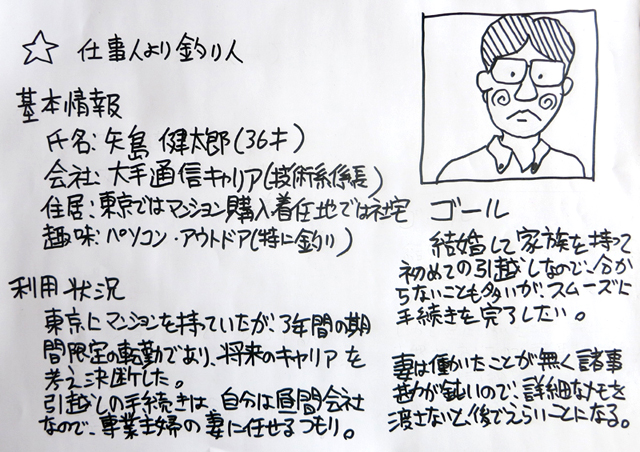 ☆ 仕事人より釣り人
基本情報
氏名: 矢島 健太郎(36才)
会社: 大手通信キャリア(技術系係長)
住居: 東京ではマンション購入着任地では社宅
趣味: パソコン・アウトドア(特に釣り)
利用状況
東京にマンションを持っていたが、3年間の期
間限定の転勤であり、将来のキャリアを
考え決断した。
引越しの手続きは、自分は昼間会社
なので、専業主婦の妻に任せるつもり。
ゴール
結婚して家族を持って
初めての引越しなので、分か
らないことも多いが、スムーズに
手続きを完了したい。
妻は働いたことが無く諸事
勘が鈍いので、詳細なメモを
渡さないと、後でえらいことになる。